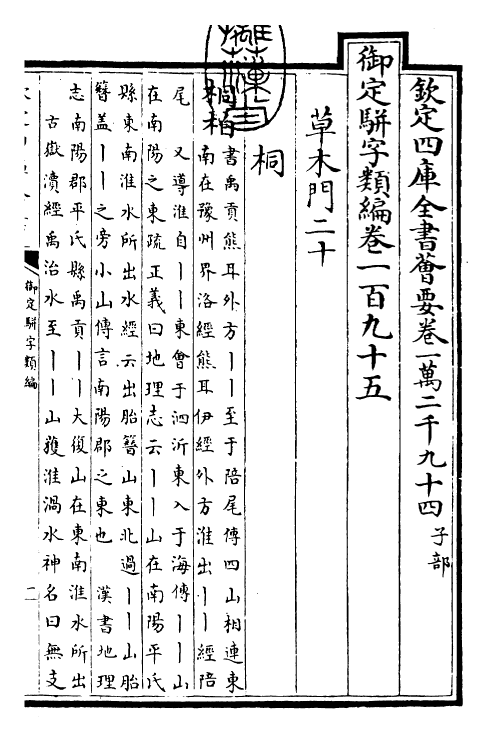 欽定四庫全書薈要卷一萬二千九十四 子部
御定駢字類編卷一百九十五
草木門二十
桐
桐柏 書禹貢熊耳外方丨丨至于陪尾傳四山相連東
南在豫州界洛經熊耳伊經外方淮出丨丨經陪
尾 又導淮自丨丨東會于泗沂東入于海傳丨丨山
在南陽之東疏正義曰地理志云丨丨山在南陽平氏
縣東南淮水所出水經云出胎簪山東北過丨丨山胎
簪蓋丨丨之旁小山傳言南陽郡之東也 漢書地理
志南陽郡平氏縣禹貢丨丨大復山在東南淮水所出
古嶽瀆經禹治水至丨丨山獲淮渦水神名曰無支
御定駢字類編